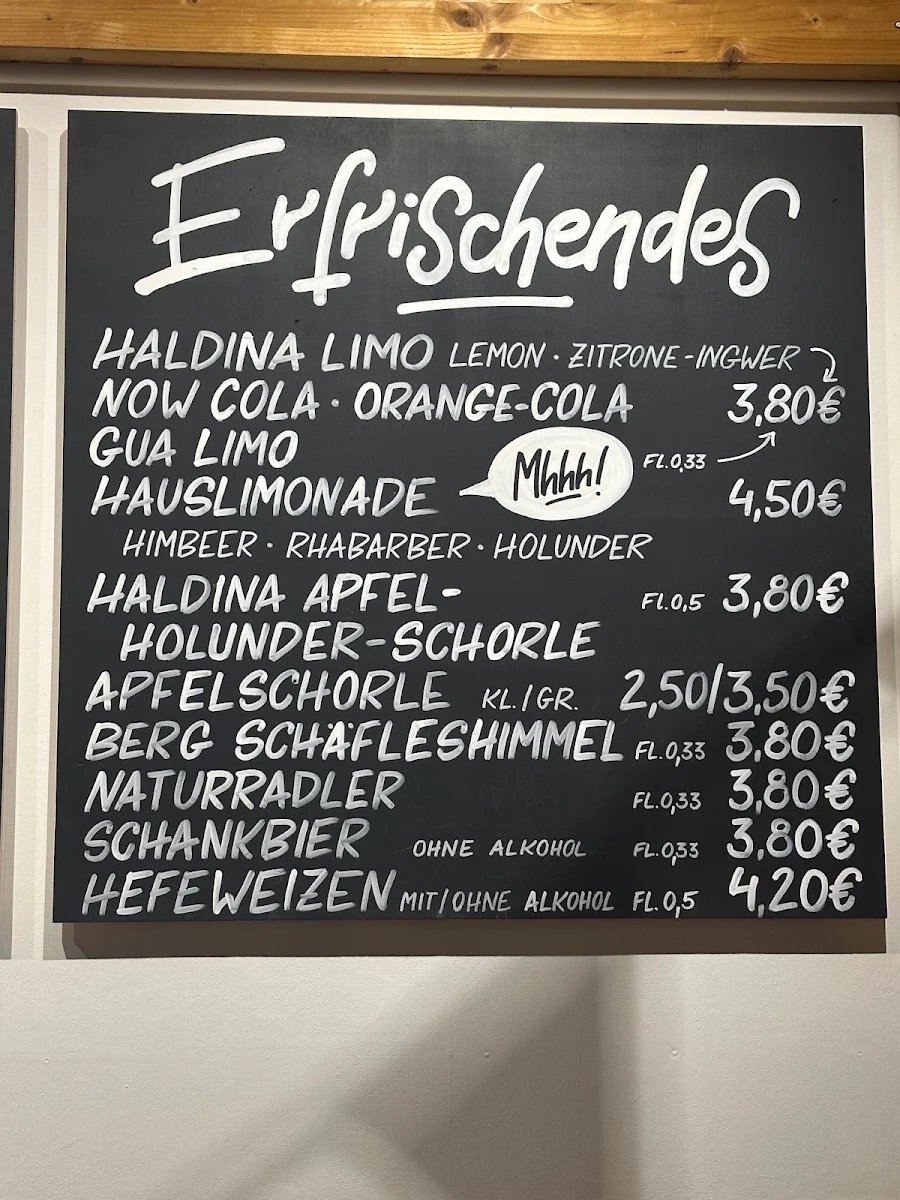 Erfrischendes
HALDINA LIMO LEMON · ZITRONE-INGWER
NOW COLA · ORANGE-COLA 3,80€
GUA LIMO FL.0,33
HAUSLIMONADE Mhhh! 4,50€
HIMBEER · RHABARBER · HOLUNDER
HALDINA APFEL- FL.0,5 3,80€
HOLUNDER-SCHORLE
APFELSCHORLE KL./GR. 2,50/3,50€
BERG SCHÄFLESHIMMEL FL.0,33 3,80€
NATURRADLER FL.0,33 3,80€
SCHANKBIER OHNE ALKOHOL FL.0,33 3,80€
HEFEWEIZEN MIT/OHNE ALKOHOL FL.0,5 4,20€